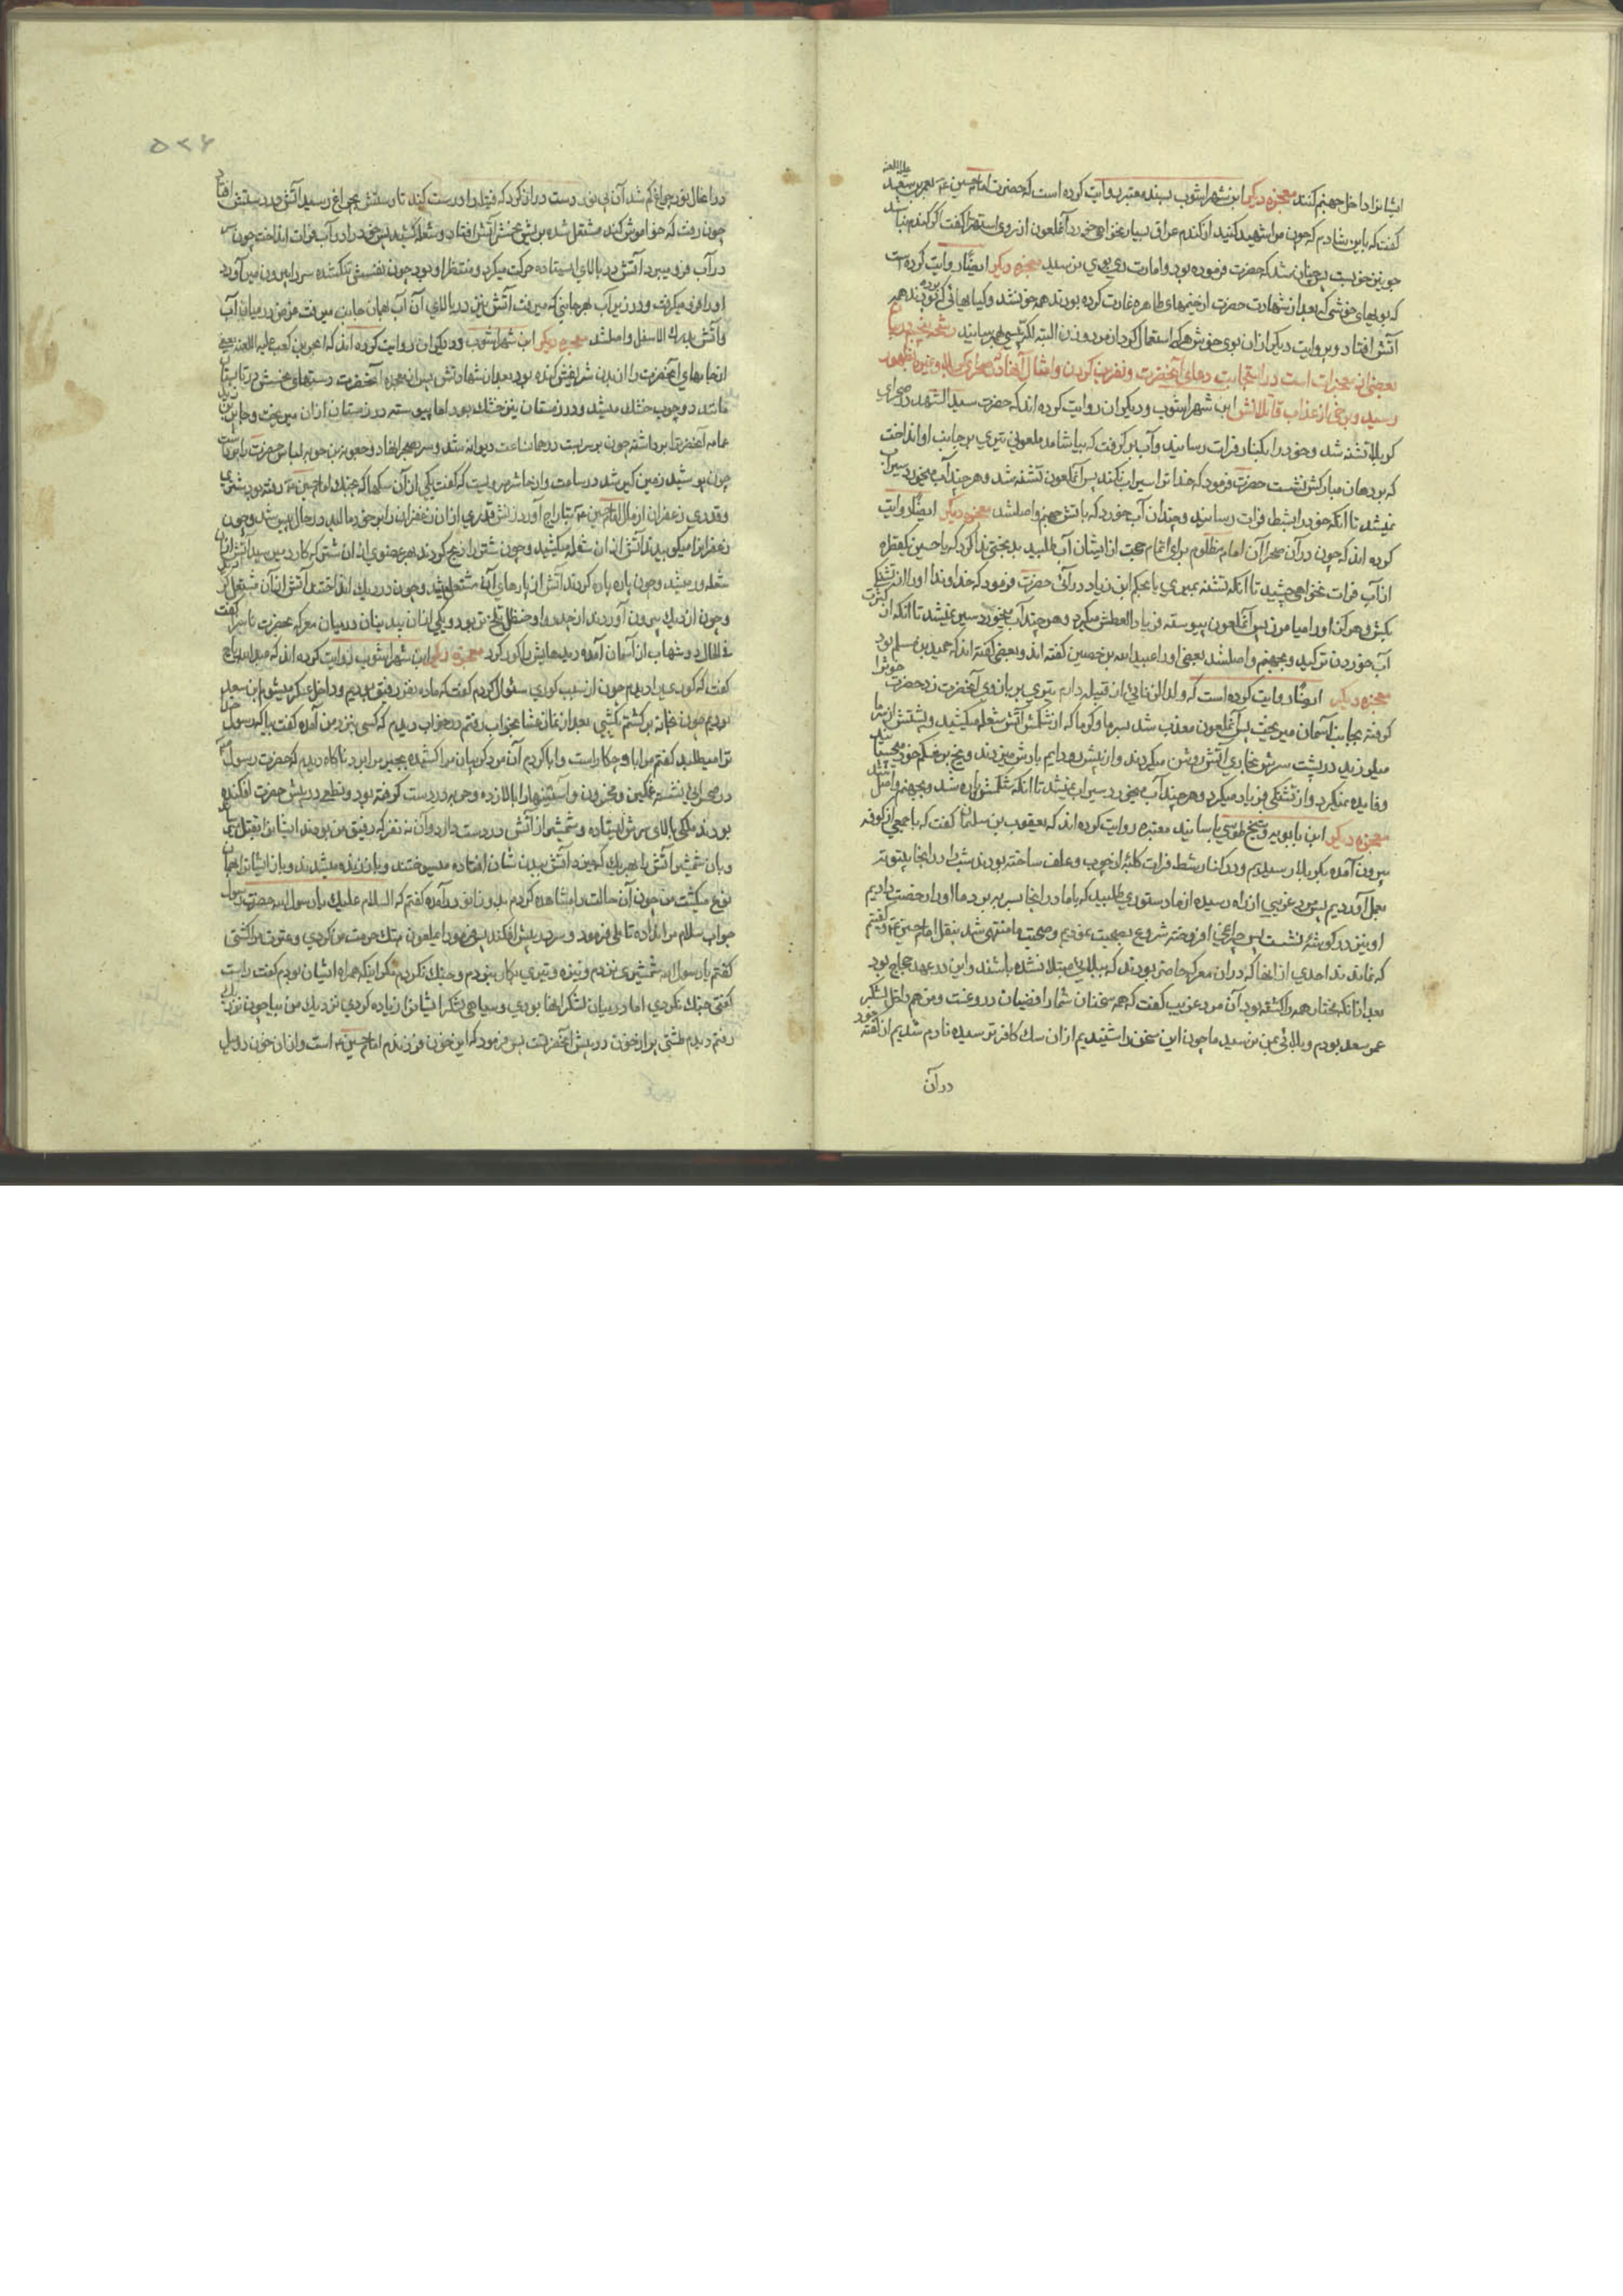 ایشانرا داخل جهنم کنند معجزه دیگر ابن شهراشوب بسند معتبر روایت کرده است که حضرت امام حسین ع بعمر بن سعد علیه اللعنه
گفت که باین شادم که چون مرا شهید کنید از کندم عراق بسیار نخواهی خورد آنملعون از روی استهزا گفت اگر کندم نباشد
جو نیز خوبست پس چنان شد که حضرت فرموده بود و امارت ری بوی نرسید معجزه دیگر ایضًا روایت کرده است
که بویهای خوشی که بعد از شهادت حضرت از خیمهای طاهره غارت کرده بودند همه خون شد و کیاهائی که برده بودند همه
آتش افتاد و بروایت دیگر ازان بوی خوش هر که استعمال کرد از مرد و زن البته پیس
بعضی از معجزات است در استجابت دعای آنحضرت و نفرین کردن و امثال آنها که در صحرای کربلا و غیر آن بظهور
رسید و برخی از عذاب قاتلانش ابن شهراشوب و دیگران روایت کرده اند که حضرت سید الشهدا در صحرای
کربلا تشنه شد و خود را بکنار فرات رسانید و آب بر گرفت که بیاشامد ملعونی تیری بر جانب او انداخت
که بر دهان مبارکش نشست حضرت فرمود که خدا ترا سیراب نکند پس آنملعون تشنه شد و هر چند آب میخورد سیراب
نمیشد تا آنکه خود را بشط فرات رسانید و چندان آب خورد که باتش جهنم واصل شد معجزه دیگر ایضًا روایت
کرده اند که چون در آن صحرا آن امام مظلوم برای اتمام حجت از ایشان آب طلبید بدبختی ندا کرد که یا حسین یکقطره
از آب فرات نخواهی چشید تا آنکه تشنه بمیری یا بحکم ابن زیاد در آئی حضرت فرمود که خداوندا او را از تشنگی
بکش و هرگز او را میامرز پس آنملعون پیوسته فریاد العطش میکرد و هر چند آب میخورد سیر نمیشد تا آنکه از کثرت
آب خوردن ترکید و بجهنم واصل شد بعضی او را عبد الله بن حصین گفته اند و بعضی گفته اند که حمید بن مسلم بود
معجزه دیگر ایضًا روایت کرده است که ولد الزنائی از قبیله دارم تیری بر بانروی آنحضرت زد حضرت خون را
گرفته بجانب آسمان میریخت پس آنملعون معذب شد بسرما و گرما که از شکمش آتش شعله میکشید و پشتش از سرما
میلرزید در پشت سرش بخاری آتش روشن میکردند و از پیش رو دایم بادش میزدند و یخ بر شکم خود میچسبانید
و فایده نمیکرد و از تشنگی فریاد میکرد و هر چند آب میخورد سیراب نمیشد تا آنکه شکمش پاره شد و بجهنم واصل شد
معجزه دیگر ابن بابویه و شیخ طوسی باسانید معتبره روایت کرده اند که یعقوب بن سلیمان گفت که با جمعی از کوفه
بیرون آمده بکربلا رسیدیم و در کنار شط فرات کلبه از چوب و علف ساخته بودند شب را در انجا بیتوته
بعمل آوردیم پس مرد غریبی از راه رسیده از ما دستوری طلبید که با ما در انجا بسر برد ما او را رخصت دادیم
او نیز در گوشه نشست پس چراغی افروخته شروع بصحبت نمودیم و صحبت ما منتهی شد بنقل امام حسین ع و گفتیم
که نماند احدی از انها که در ان معرکه حاضر بودند که ببلائی مبتلا نشده باشند و این در عهد حجاج بود
بعد از آنکه مختار همه را کشته بود آن مرد غریب گفت که همه سخنان شما رافضیان دروغست و من هم داخل لشکر
عمر سعد بودم و بلائی بمن نرسید ما چون این سخن را شنیدیم از ان سک کافر ترسیده نادم شدیم از گفته خود
در آن
۵۲۶
در اعمال نور چراغ کم شد آن بی نور دست دراز کرد که فتیله را درست کند تا دستش بچراغ رسید آتش در دستش افتاد
چون رفت که خاموش کند مشتعل شده بریش نحسش آتش افتاد و شعله کشید پس خود را در آب فرات انداخت چون سر
در آب فرو میبرد آتش در بالای ایستاده حرکت میکرد و منتظر او بود چون نفسش تنگ شده سر را بیرون می آورد
او را فرو میگرفت و در زیر آب بهر جانبی که میرفت آتش نیز در بالای آن آب بهمان جانب میرفت در میان آب
و آتش بدرک الاسفل واصل شد معجزه دیگر ابن شهراشوب و دیگران روایت کرده اند که ابجر بن کعب علیه اللعنه بعضی
از جامهای آنحضرت را از بدن شریفش کنده بود بعد از شهادتش پس از معجزه آنحضرت دستهای نحسش در تابستان
مانند دو چوب خشک میشد و در زمستان نیز خشک بود اما پیوسته در زمستان از ان میریخت و جابر بن
عمامه آنحضرترا برداشته چون بر سر بست در همان ساعت دیوانه شد و سر بصحرا نهاد و جعوبه بن حویه لباس حضرت را
چون پوشید زمین گیر شد در ساعت و از حاشر مرویست که گفت یکی از آن سکها که بجنک امام حسین ع رفته بود شتری
و قدری زعفران از مال امام حسین ع بتاراج آورد زنش قدری از ان زعفران را بر خود مالید در حال پیس شد و چون
زعفرانرا میکوبیدند آتش از ان شعله میکشید و چون شتر را نحر کردند بهر عضوی از ان شتر که کارد میرسید آتش از ان
شعله ور میشد و چون پاره پاره کردند آتش از پارهای آن مشتعل میشد و چون در دیک انداختند آتش از آن مشتعل شد
و چون از دیک بیرون آوردند از جدوار و حنظل تلخ تر بود و یکی از ان بیدینان در میان معرکه بحضرت ناسزا گفت
فی الحال دو شهاب از آسمان آمده دیدهایش را کور کرد معجزه دیگر ابن شهراشوب روایت کرده اند که عبد الله بن رباح
گفت که کوری را دیدم چون از سبب کوری سئوال کردم گفت که ما ده نفر رفیق بودیم و داخل لشکر میشوم ابن سعد
بودیم چون بخانه بر گشتم شبی بعد از نماز عشا بخواب رفتم در خواب دیدم که کسی بنزد من آمده گفت بیا که رسول خدا
ترا میطلبد گفتم مرا با او چکار است و ابا کردم آن مرد گریبان مرا کشیده بجبر مرا برد ناگاه دیدم که حضرت رسول ص
در صحرائی نشسته غمگین و محزون و آستینها را بالا زده و حربه در دست گرفته بود و نطعی در پیش حضرت افکنده
بودند ملکی بالای سرش ایستاده و شمشیر از آتش در دست دارد و آن نه نفر که رفیق من بودند ایشانرا بقتل میرساند
و بان شمشیر آتش بهر یک که میزد آتش ببدن شان افتاده میسوختند و باز زنده میشدند و باز ایشانرا بهمان
نوع میکشت من چون آن حالت را مشاهده کردم بدو زانو در آمده گفتم که السلام علیک یا رسول الله حضرت رسول
جواب سلام من نداده تاملی فرمود و سر در پیش افکند پس فرمود ایملعون هتک حرمت من کردی و عترت مرا کشتی
گفتم یا رسول الله شمشیری نزدم و نیزه و تیری بکار نبردم و جنک نکردم مگر اینکه همراه ایشان بودم گفت راست
گفتی جنک نکردی اما در میان لشکر انها بودی و سیاهی لشکر ایشانرا زیاده کردی نزدیک من بیا چون نزدیک
رفتم دیدم طشتی پر از خون در پیش آنحضرتست پس فرمود که این خون فرزندم امام حسین ع است و از ان خون دو میل